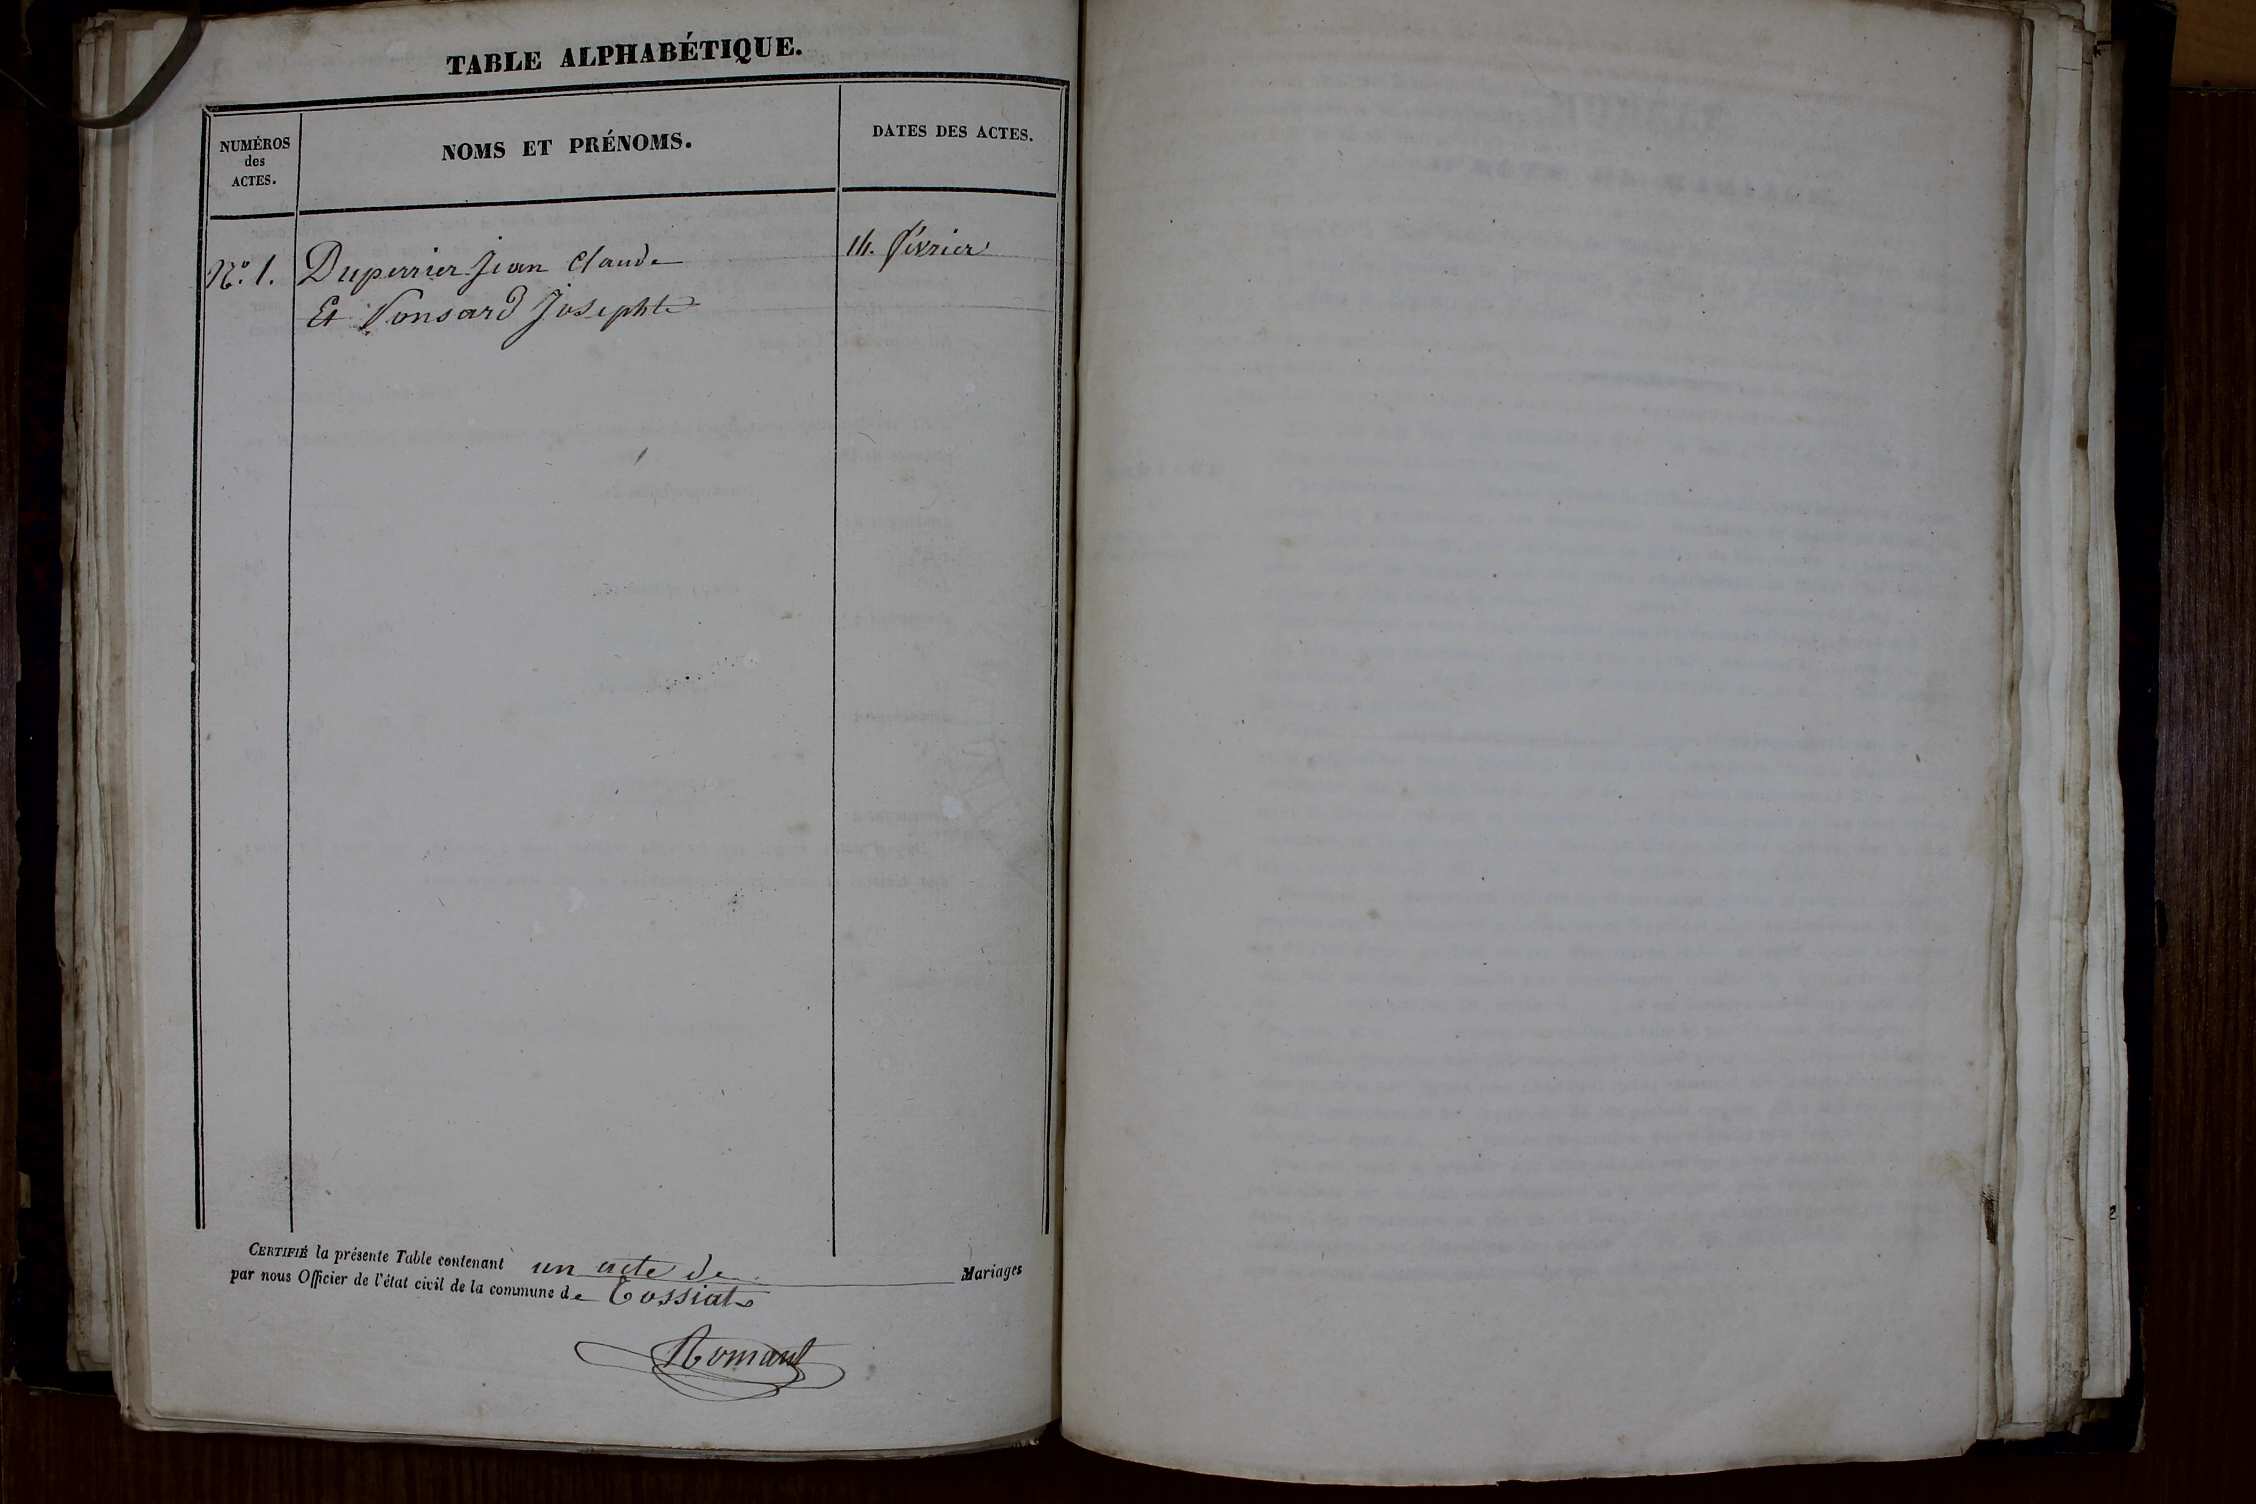 TABLE ALPHABÉTIQUE.
NUMÉROS
des
ACTES.
NOMS ET PRÉNOMS.
DATES DES ACTES.
N.º 1. Duperrier Jean Claude 14. février
Et Ponsard Josephte
CERTIFIÉ la présente Table contenant un acte de Mariages
par nous Officier de l'état civil de la commune de Tossiat